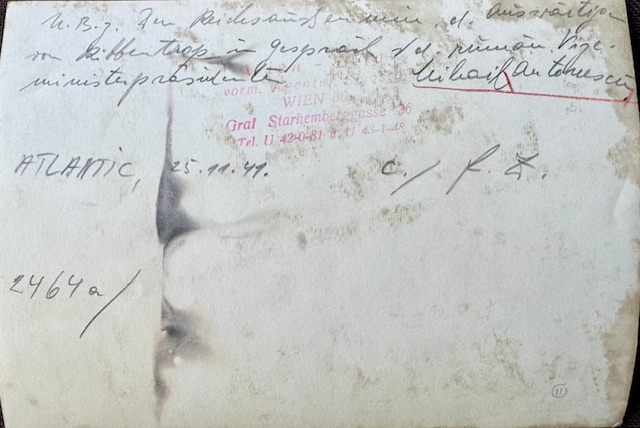 U. B. z. den Reichsaußenmin. d. Auswärtigen
von Ribbentrop im Gespräch m/d. rumän. Vize-
ministerpräsidenten Mihail Antonescu
vorm.
WIEN
Graf Starhemberggasse 36
Tel. U 42-0-81 u. U 43-1-48
ATLANTIC, 25.11.41. c./
2464a/
11